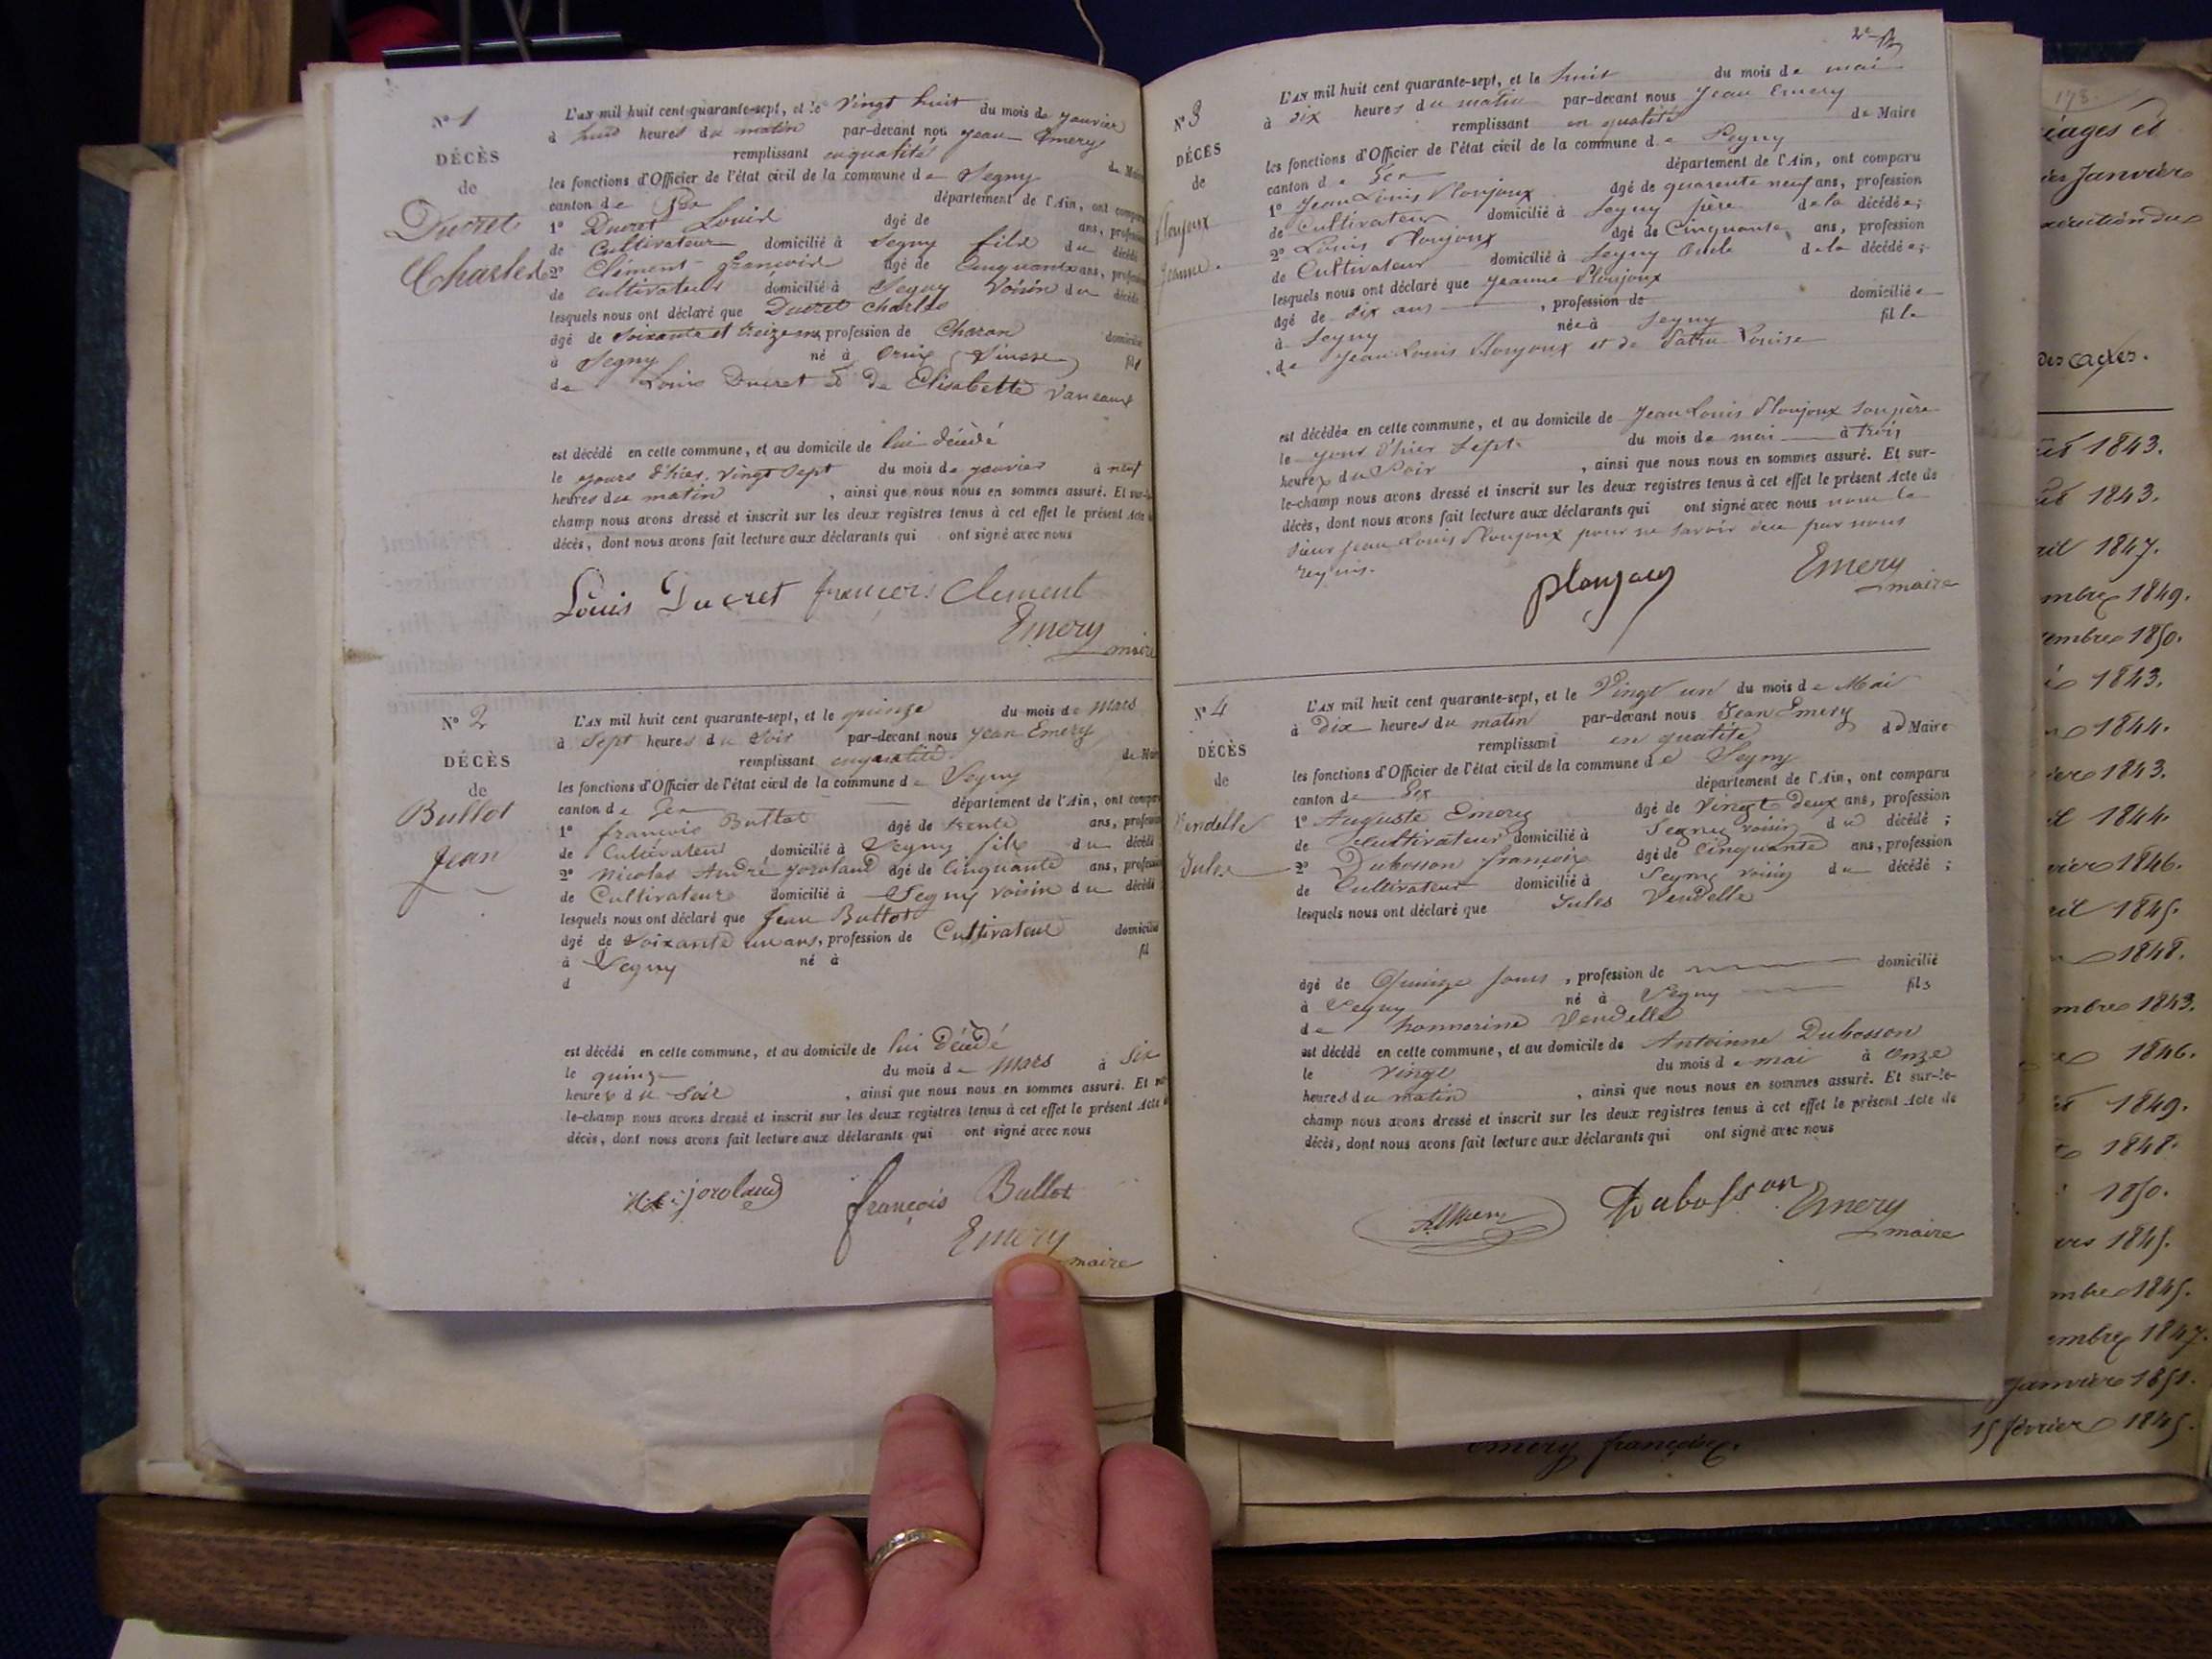 N° 1
DÉCÈS
de
Ducret
Charles
L'an mil huit cent quarante-sept, et le vingt huit du mois de janvier
à huit heures du matin par-devant nous Jean Emery
remplissant en qualité de Maire
les fonctions d'Officier de l'état civil de la commune de Segny
canton de Gex département de l'Ain, ont comparu
1° Ducret Louis âgé de ans, profession
de Cultivateur domicilié à Segny fils du décédé
2° Clément François âgé de Cinquante ans, profession
de cultivateur domicilié à Segny Voisin du décédé
lesquels nous ont déclaré que Ducret Charles
âgé de soixante et treize ans, profession de Charon domicilié
à Segny né à fils
de Louis Ducret & de Elisabette
est décédé en cette commune, et au domicile de lui décédé
le jours d'hier, vingt sept du mois de janvier à neuf
heures du matin , ainsi que nous nous en sommes assuré. Et sur-le-
champ nous avons dressé et inscrit sur les deux registres tenus à cet effet le présent Acte
décès, dont nous avons fait lecture aux déclarants qui ont signé avec nous
Louis Ducret françois Clement
Emery
maire
N° 2
DÉCÈS
de
Bullot
Jean
L'an mil huit cent quarante-sept, et le quinze du mois de mars
à sept heures du soir par-devant nous Jean Emery
remplissant en qualité de Maire
les fonctions d'Officier de l'état civil de la commune de Segny
canton de Gex département de l'Ain, ont comparu
1° françois Bullot âgé de trente ans, profession
de Cultivateur domicilié à Segny fils du décédé
2° Nicolas André joroland âgé de Cinquante ans, profession
de Cultivateur domicilié à Segny voisin du décédé
lesquels nous ont déclaré que Jean Bullot
âgé de soixante un ans, profession de Cultivateur domicilié
à Segny né à fil
d
est décédé en cette commune, et au domicile de lui Décédé
le quinze du mois de Mars à Six
heures du soir , ainsi que nous nous en sommes assuré. Et sur-
le-champ nous avons dressé et inscrit sur les deux registres tenus à cet effet le présent Acte
décès, dont nous avons fait lecture aux déclarants qui ont signé avec nous
joroland françois Bullot
Emery
maire
N° 3
DÉCÈS
de
Plonjoux
Jeanne.
L'an mil huit cent quarante-sept, et le huit du mois de mai
à dix heures du matin par-devant nous Jean Emery
remplissant en qualité de Maire
les fonctions d'Officier de l'état civil de la commune de Segny
canton de Gex département de l'Ain, ont comparu
1° Jean Louis Plonjoux âgé de quarante neuf ans, profession
de Cultivateur domicilié à Segny père de la décédée;
2° Louis Plonjoux âgé de Cinquante ans, profession
de Cultivateur domicilié à Segny Oncle de la décédée;
lesquels nous ont déclaré que Jeanne Plonjoux
âgé de dix ans , profession de domiciliée
à Segny née à Segny fille
de Jean Louis Plonjoux et de Louise
est décédée en cette commune, et au domicile de Jean Louis Plonjoux son père
le jour d'hier sept du mois de mai à trois
heures du Soir , ainsi que nous nous en sommes assuré. Et sur-
le-champ nous avons dressé et inscrit sur les deux registres tenus à cet effet le présent Acte de
décès, dont nous avons fait lecture aux déclarants qui ont signé avec nous non le
sieur Jean Louis Plonjoux pour ne savoir de ce par nous
requis.
plonjoux Emery
maire
N° 4
DÉCÈS
de
Vendelle
Jules
L'an mil huit cent quarante-sept, et le Vingt un du mois de Mai
à Dix heures du matin par-devant nous Jean Emery
remplissant en qualité de Maire
les fonctions d'Officier de l'état civil de la commune de Segny
canton de Gex département de l'Ain, ont comparu
1° Auguste Emery âgé de Vingt deux ans, profession
de Cultivateur domicilié à Segny voisin du décédé ;
2° Dubosson françois âgé de Cinquante ans, profession
de Cultivateur domicilié à Segny voisin du décédé ;
lesquels nous ont déclaré que Jules Vendelle
âgé de Quinze jours , profession de domicilié
à Segny né à Segny fils
de honnorine Vendelle
est décédé en cette commune, et au domicile de Antoinne Dubosson
le vingt du mois de mai à Onze
heures du matin , ainsi que nous nous en sommes assuré. Et sur-le-
champ nous avons dressé et inscrit sur les deux registres tenus à cet effet le présent Acte de
décès, dont nous avons fait lecture aux déclarants qui ont signé avec nous
Dubosson Emery
maire
emery françoise.
178.
Janvier
des actes.
1843.
1843.
1847.
1849.
1850.
1843.
1844.
1843.
1844.
1846.
1845.
1848.
1843.
1846.
1849.
1848.
1850.
1845.
1845.
1847.
Janvier 1851.
15 février 1845.